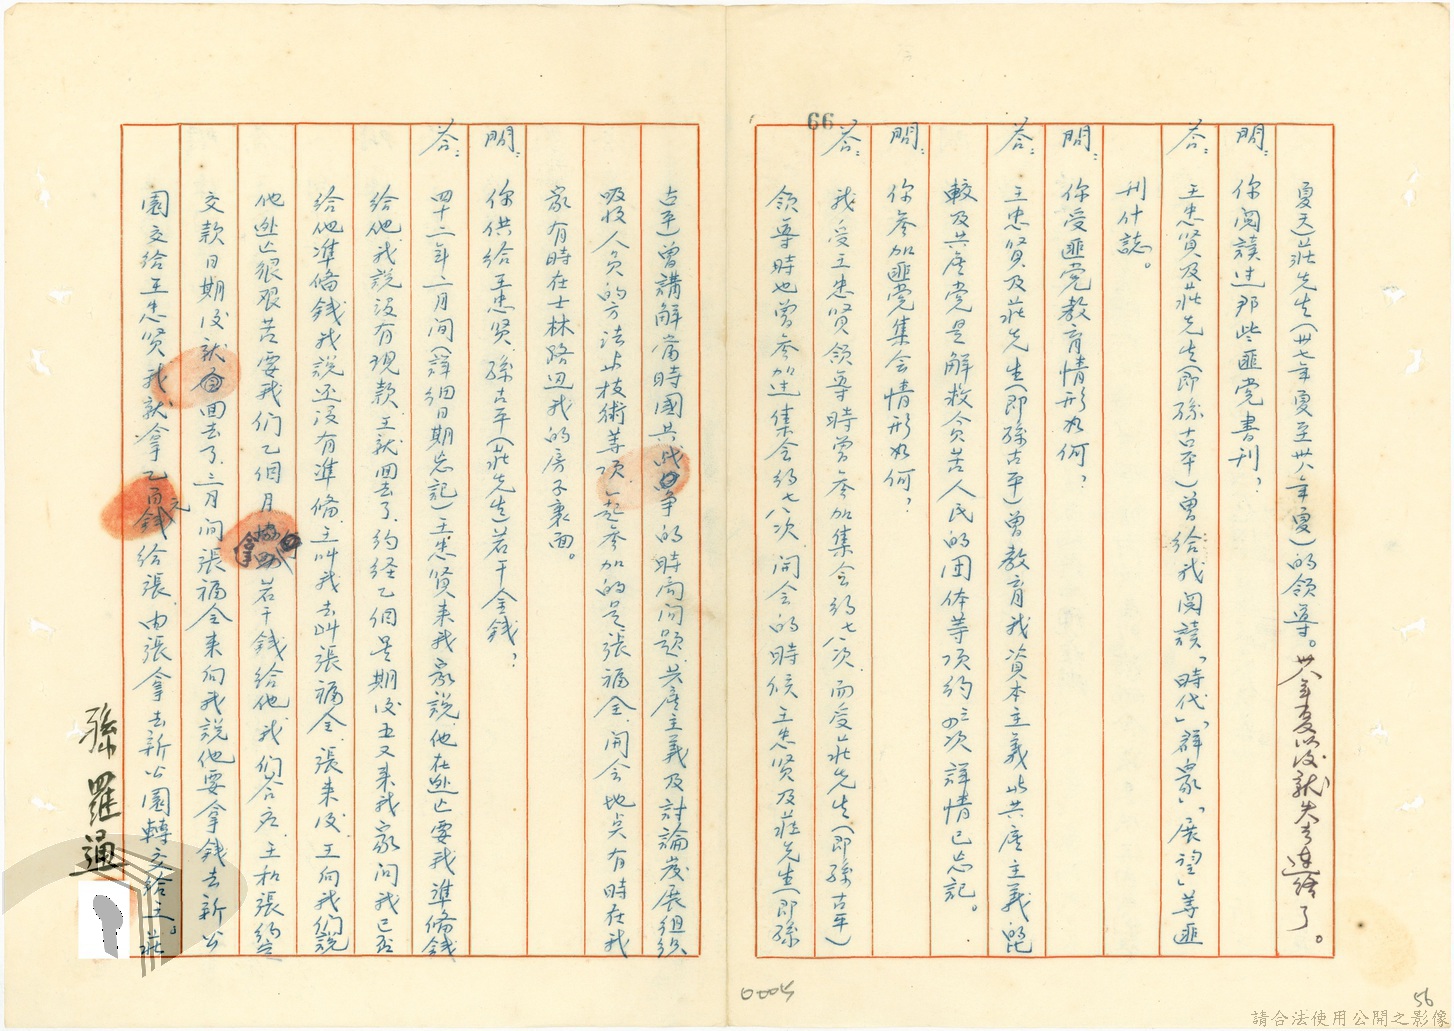 夏天)莊先生(卅七年夏至卅八年夏)的領導。卅八年夏以後就失去連絡了。
問：你閱讀过那些匪党書刊？
答：王忠賢及莊先生(即孫古平)曾給我閱讀「時代」「群衆」「展望」等匪
刊什誌。
問：你受匪党教育情形如何？
答：王忠贤及莊先生(即孫古平)曾教育我資本主義此共產主義的比
較及共產党是解救贫苦人民的团体等項約三次詳情已忘記。
問：你參加匪党集会情形如何？
答：我受王忠贤領導時曾參加集会約七八次，而受莊先生(即孫古平)
領導時也曾參加过集会約七八次，開会的時候王忠贤及莊先生(即孫
古平)曾講解當時國共战争的時局问題，共產主義及討論發展组织
吸收人员的方法与技術等項，一起參加的是張福全，開会地点有時在我
家有時在士林路边我的房子裏面。
問：你供給王忠贤、孫古平(莊先生)若干金錢？
答：四十二年二月间(詳细日期忘記)王忠賢来我家說，他在逃亡要我準备錢
給他，我說没有現款，王就回去了，約経乙個星期後王又来我家问我已否
給他準备錢，我說还没有準备，王叫我去叫張福全，張来後，王向我们說
他逃亡很艰苦要我们乙個月若干錢給他，我们答应，王和張約定
交款日期後就回去了，三月间張福全来向我說他要拿錢去新公
園交給王忠贤，我就拿乙百元錢給張，由張拿去新公園轉交給王。莊
孫羅通
66
0005
56
請合法使用公開之影像